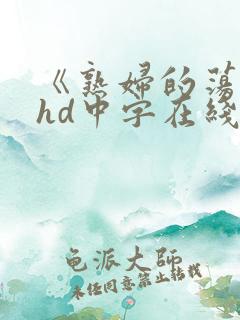 《熟婦的蕩
hd中字在綫
龟派大师
未经同意禁止转载